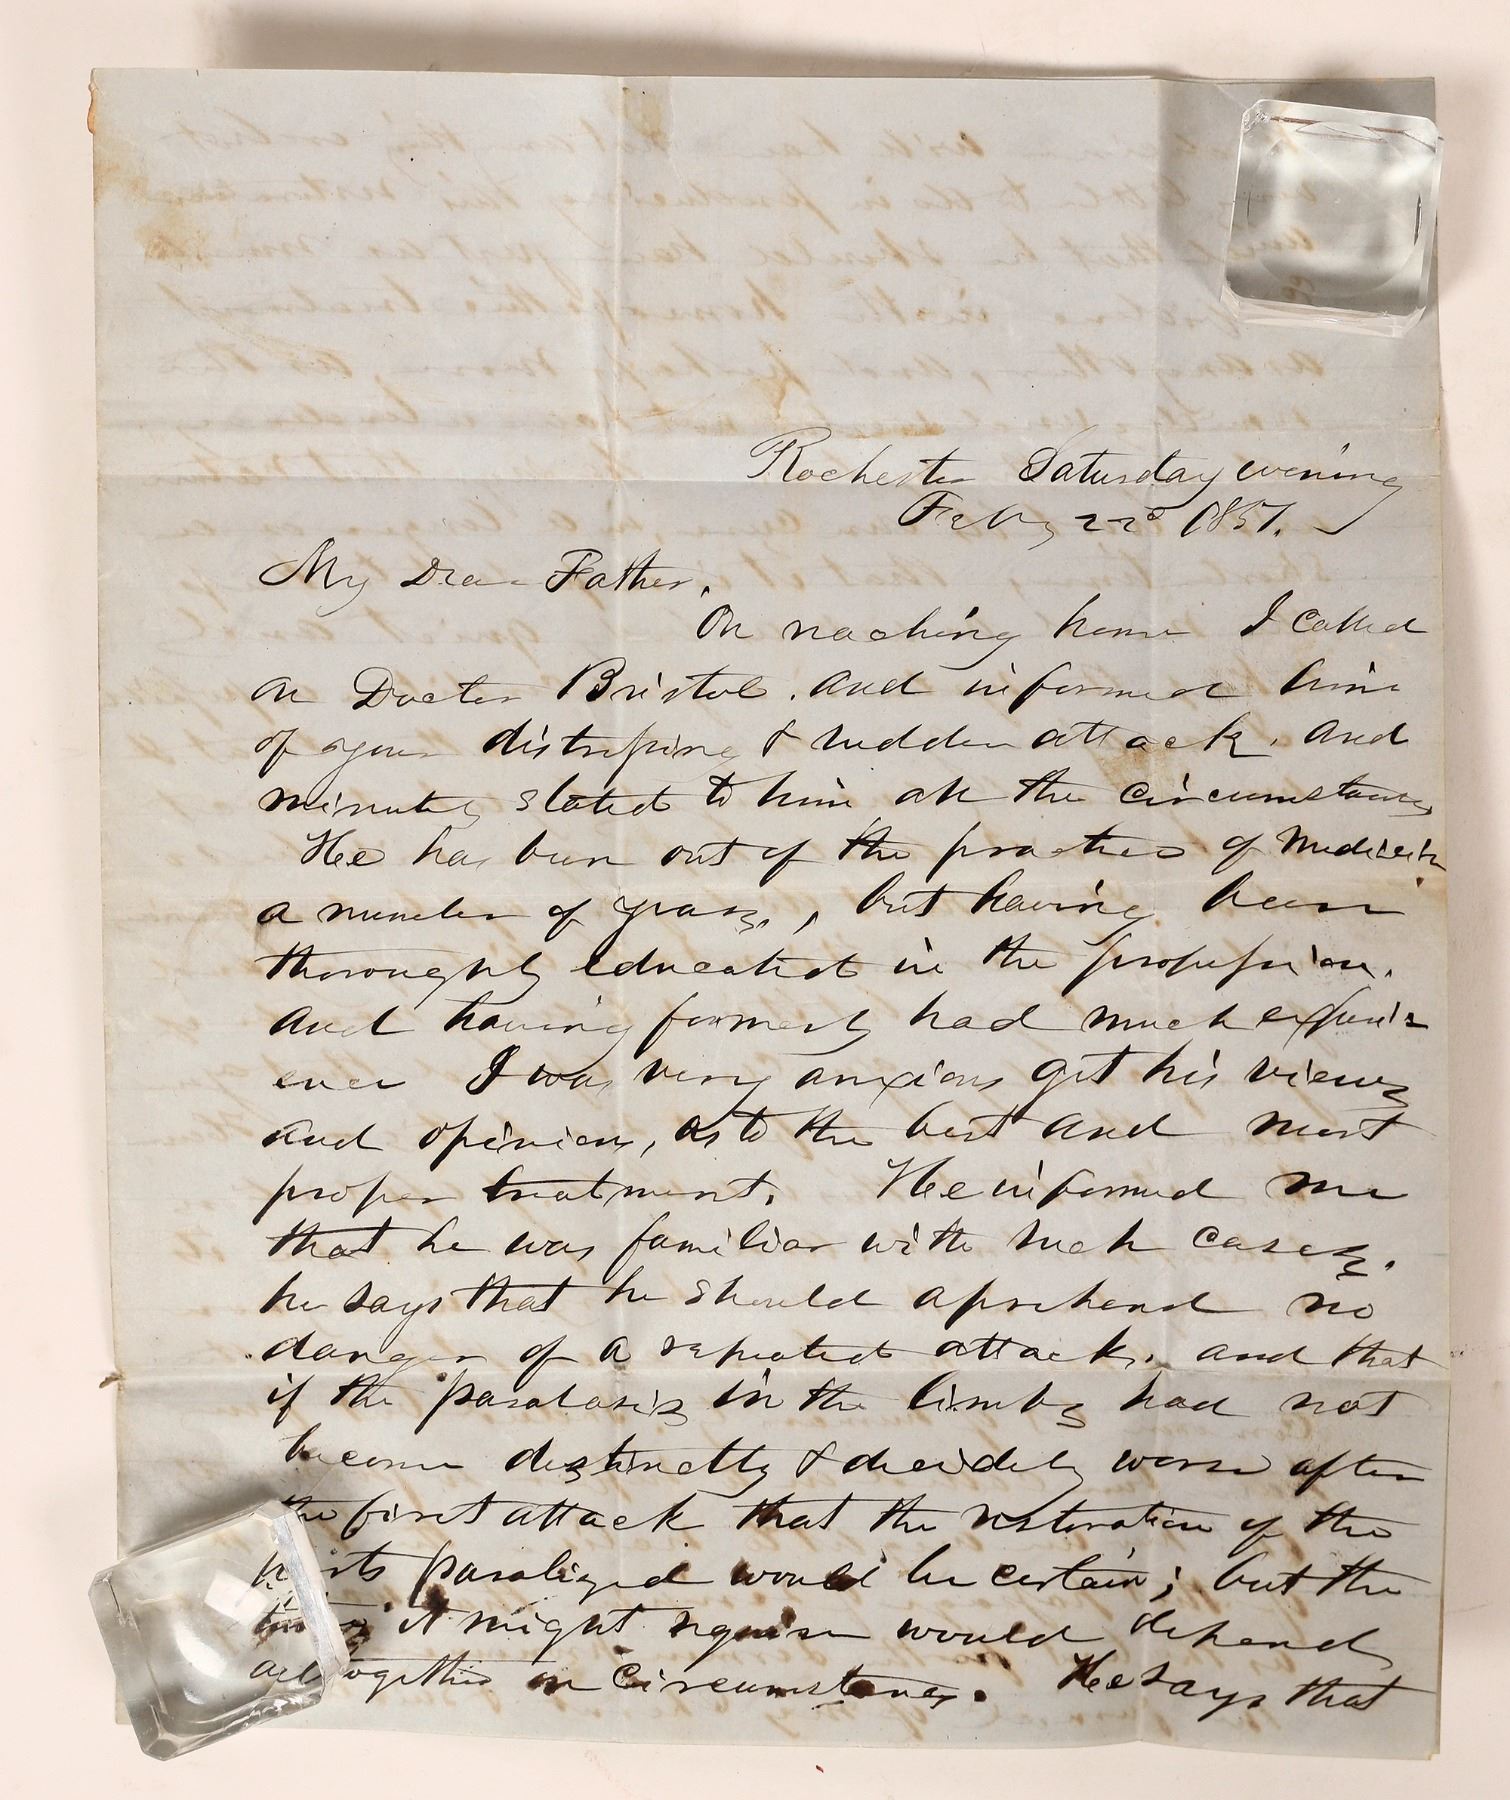 Rochester Saturday evening
Feby 22d 1851.
My Dear Father.
On reaching home I called
on Doctor Bristol. and informed him
of your distressing & sudden attack. and
minutely stated to him all the circumstances
He has been out of the practice of Medicine
a number of years, but having been
thoroughly educated in the profession.
and having formerly had much experi-
ence I was very anxious get his views
and opinion, as to the best and most
proper treatment. He informed me
that he was familiar with such cases.
he says that he should aprehend no
danger of a repeated attack. and that
if the paralasis in the limbs had not
become destinctly & decidely worse after
the first attack that the restoration of the
parts paralized would be certain; but the
time it might require would depend
altogether on Circumstances. He says that